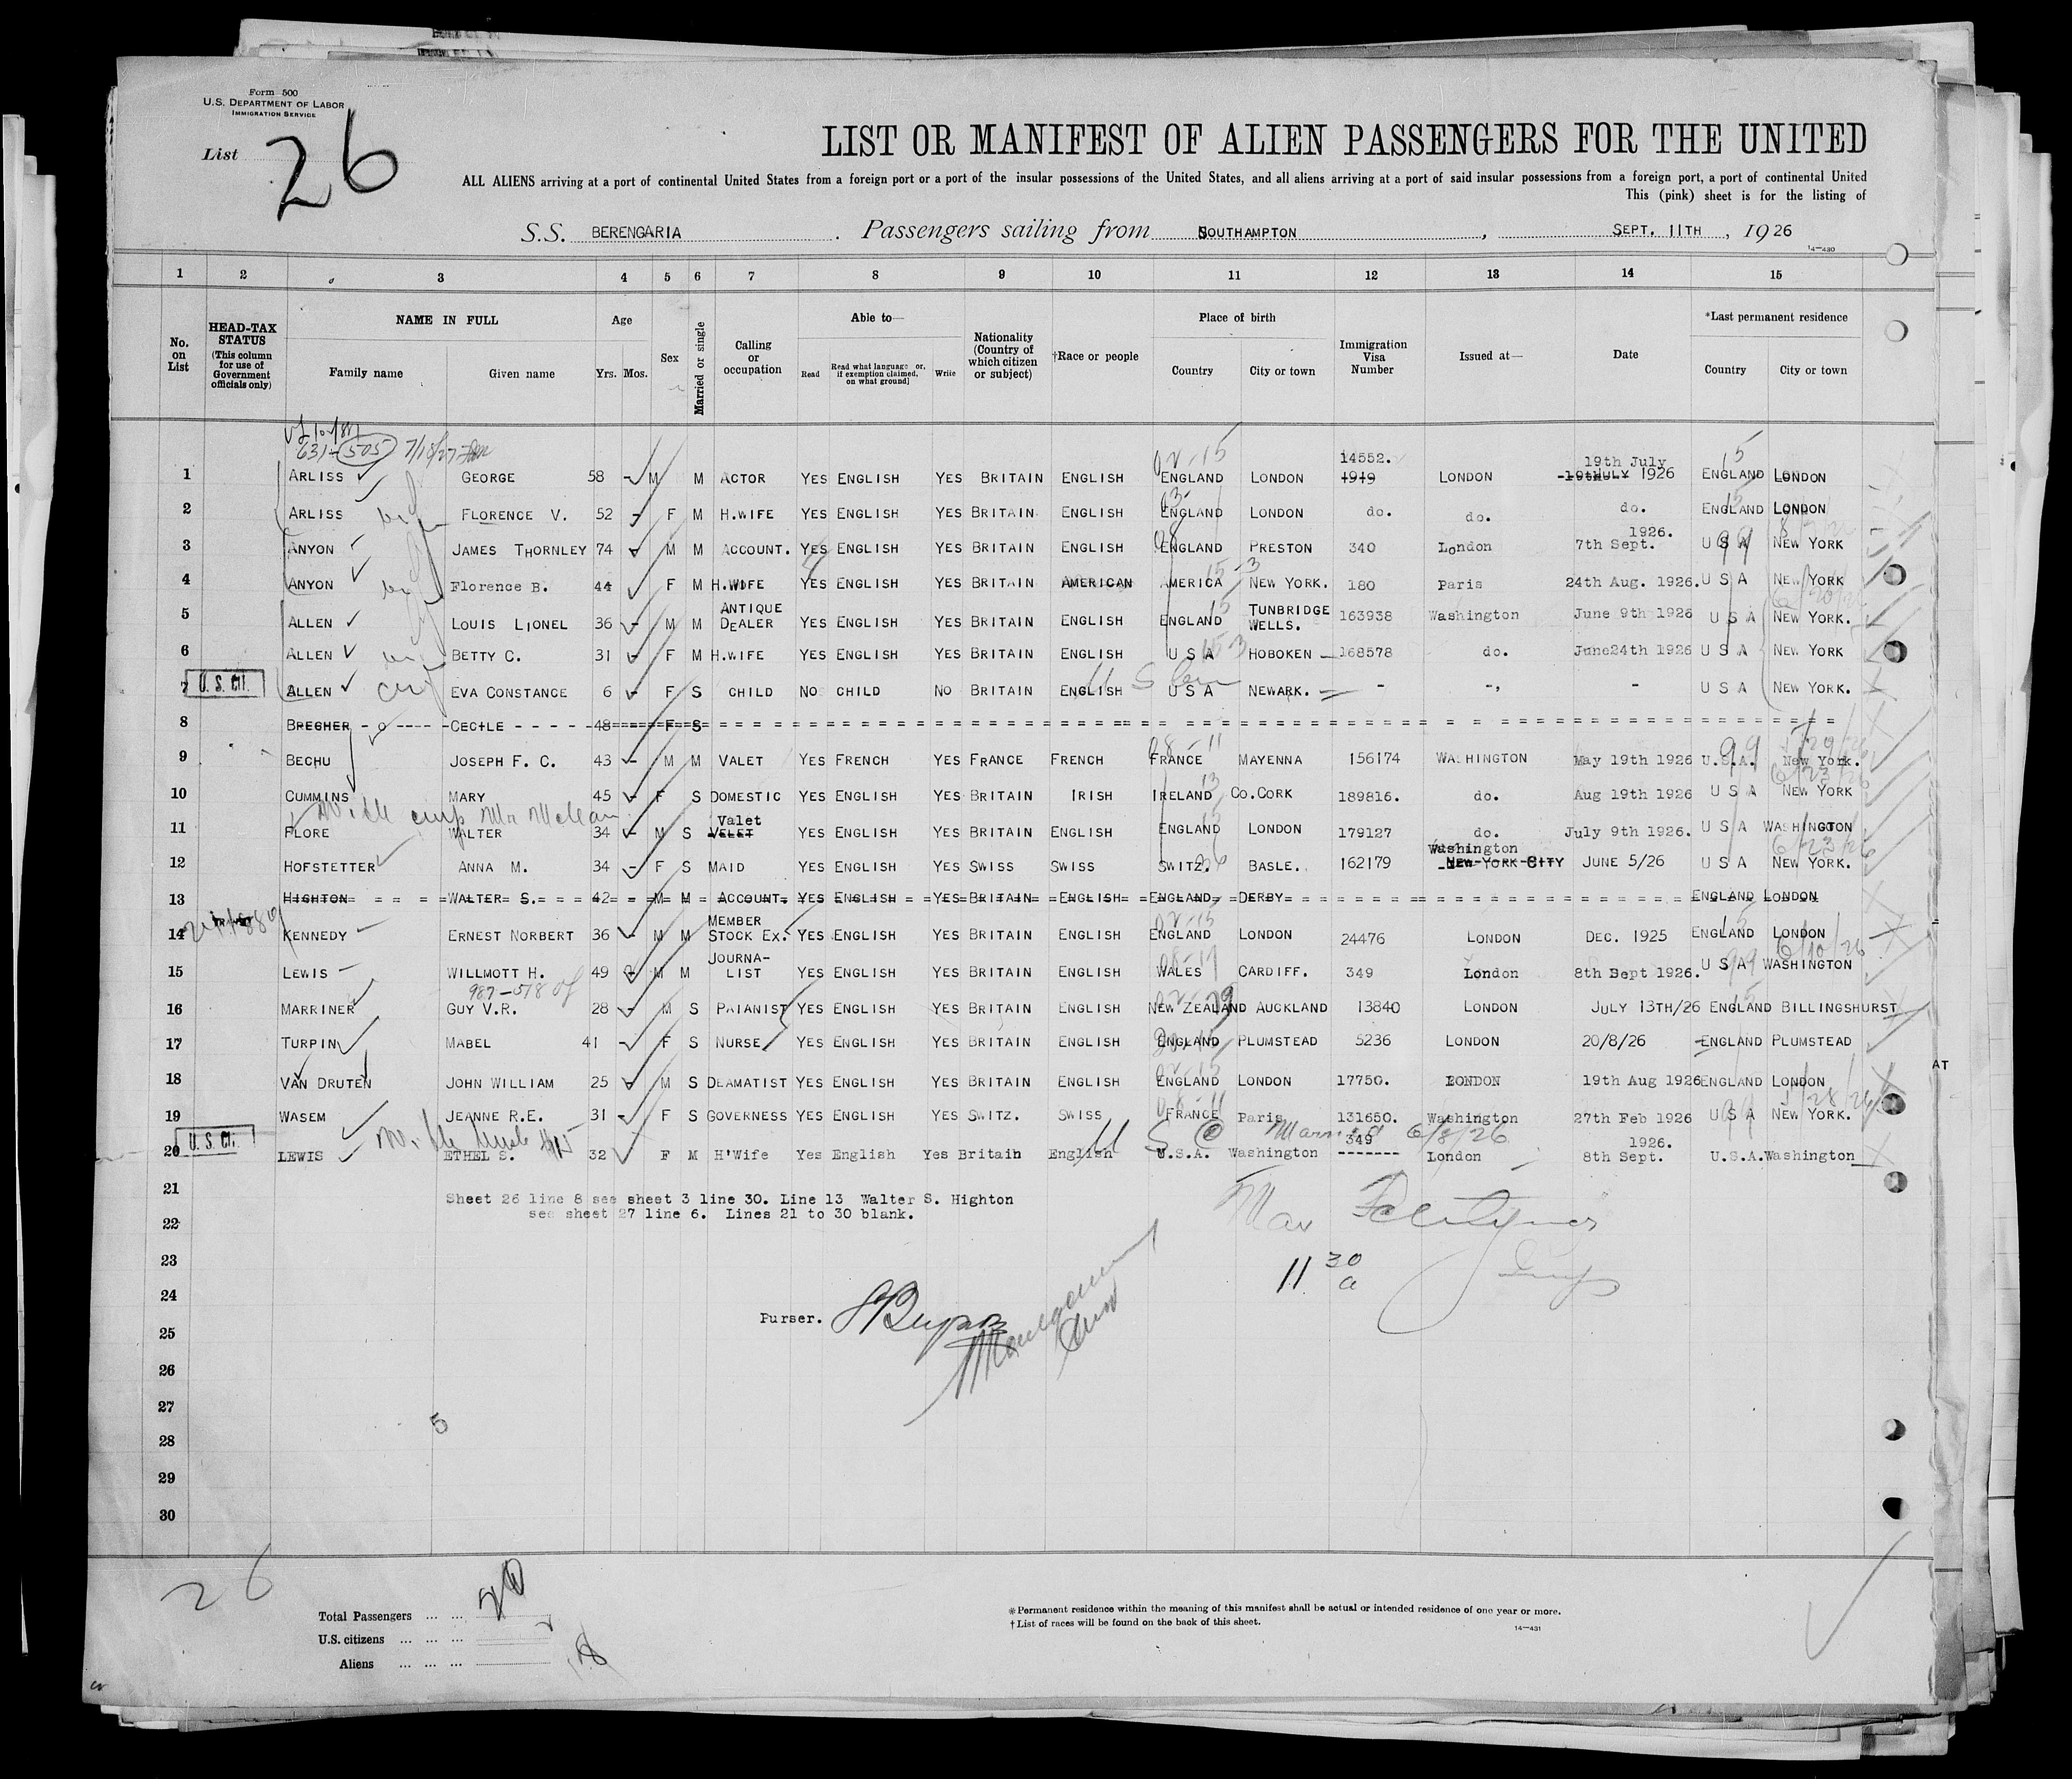 Form 500
U.S. DEPARTMENT OF LABOR
IMMIGRATION SERVICE
List 26
LIST OR MANIFEST OF ALIEN PASSENGERS FOR THE UNITED
ALL ALIENS arriving at a port of continental United States from a foreign port or a port of the insular possessions of the United States, and all aliens arriving at a port of said insular possessions from a foreign port, a port of continental United
This (pink) sheet is for the listing of
S.S. BERENGARIA. Passengers sailing from SOUTHAMPTON, SEPT. 11TH, 1926
14—430
1 2 3 4 5 6 7 8 9 10 11 12 13 14 15
No. on List
HEAD-TAX STATUS (This column for use of Government officials only)
NAME IN FULL
Family name Given name
Age
Yrs. Mos.
Sex
Married or single
Calling or occupation
Able to—
Read Read what language or, if exemption claimed, on what ground] Write
Nationality (Country of which citizen or subject)
†Race or people
Place of birth
Country City or town
Immigration Visa Number
Issued at—
Date
*Last permanent residence
Country City or town
631-505 7/18/27
1 ARLISS GEORGE 58 M M ACTOR YES ENGLISH YES BRITAIN ENGLISH ENGLAND LONDON 14552. 1919 LONDON 19th July 19thJULY 1926 ENGLAND LONDON
2 ARLISS FLORENCE V. 52 F M H.WIFE YES ENGLISH YES BRITAIN ENGLISH ENGLAND LONDON do. do. do. ENGLAND LONDON
3 ANYON JAMES THORNLEY 74 M M ACCOUNT. YES ENGLISH YES BRITAIN ENGLISH ENGLAND PRESTON 340 London 7th Sept. 1926. U S A NEW YORK
4 ANYON Florence B. 44 F M H.WIFE YES ENGLISH YES BRITAIN AMERICAN AMERICA NEW YORK. 180 Paris 24th Aug. 1926. U S A NEW YORK
5 ALLEN LOUIS LIONEL 36 M M ANTIQUE DEALER YES ENGLISH YES BRITAIN ENGLISH ENGLAND TUNBRIDGE WELLS. 163938 Washington June 9th 1926 U S A NEW YORK.
6 ALLEN BETTY C. 31 F M H.WIFE YES ENGLISH YES BRITAIN ENGLISH U S A HOBOKEN 168578 do. June24th 1926 U S A NEW YORK
U.S. CIT.
7 ALLEN EVA CONSTANCE 6 F S CHILD NO CHILD NO BRITAIN ENGLISH U S A NEWARK. - -, - U S A NEW YORK.
8 BREGHER CECILE 48 F S
9 BECHU JOSEPH F. C. 43 M M VALET YES FRENCH YES FRANCE FRENCH FRANCE MAYENNA 156174 WASHINGTON May 19th 1926 U.S.A. New York.
10 CUMMINS MARY 45 F S DOMESTIC YES ENGLISH YES BRITAIN IRISH IRELAND Co.CORK 189816. do. Aug 19th 1926 U S A NEW YORK
With emp Mr McLean
11 FLORE WALTER 34 M S Valet VELET YES ENGLISH YES BRITAIN ENGLISH ENGLAND LONDON 179127 do. July 9th 1926. U S A WASHINGTON
12 HOFSTETTER ANNA M. 34 F S MAID YES ENGLISH YES SWISS SWISS SWITZ. BASLE. 162179 Washington NEW YORK CITY JUNE 5/26 U S A NEW YORK.
13 HIGHTON WALTER S. 42 M M ACCOUNT YES ENGLISH YES BRITAIN ENGLISH ENGLAND DERBY ENGLAND LONDON
14 KENNEDY ERNEST NORBERT 36 M M MEMBER STOCK EX. YES ENGLISH YES BRITAIN ENGLISH ENGLAND LONDON 24476 LONDON DEC. 1925 ENGLAND LONDON
15 LEWIS WILLMOTT H. 49 M M JOURNA-LIST YES ENGLISH YES BRITAIN ENGLISH WALES CARDIFF. 349 London 8th Sept 1926. U S A WASHINGTON
16 MARRINER GUY V.R. 28 M S PAIANIST YES ENGLISH YES BRITAIN ENGLISH NEW ZEALAND AUCKLAND 13840 LONDON JULY 13TH/26 ENGLAND BILLINGSHURST
17 TURPIN MABEL 41 F S NURSE YES ENGLISH YES BRITAIN ENGLISH ENGLAND PLUMSTEAD 5236 LONDON 20/8/26 ENGLAND PLUMSTEAD
18 VAN DRUTEN JOHN WILLIAM 25 M S DEAMATIST YES ENGLISH YES BRITAIN ENGLISH ENGLAND LONDON 17750. LONDON 19th Aug 1926 ENGLAND LONDON
19 WASEM JEANNE R.E. 31 F S GOVERNESS YES ENGLISH YES SWITZ. SWISS FRANCE Paris 131650. Washington 27th Feb 1926 U S A NEW YORK.
U.S. CIT.
20 LEWIS ETHEL S. 32 F M H'Wife Yes English Yes Britain English U.S.A. Washington 349 London 8th Sept. 1926. U.S.A. Washington
21 Sheet 26 line 8 see sheet 3 line 30. Line 13 Walter S. Highton
22 see sheet 27 line 6. Lines 21 to 30 blank.
23
11 30 a
24
Purser.
25
26
27
28
29
30
26
Total Passengers ... ... 20
U.S. citizens ... ... ...
Aliens ... ... ... 18
*Permanent residence within the meaning of this manifest shall be actual or intended residence of one year or more.
†List of races will be found on the back of this sheet.
14—431
AT